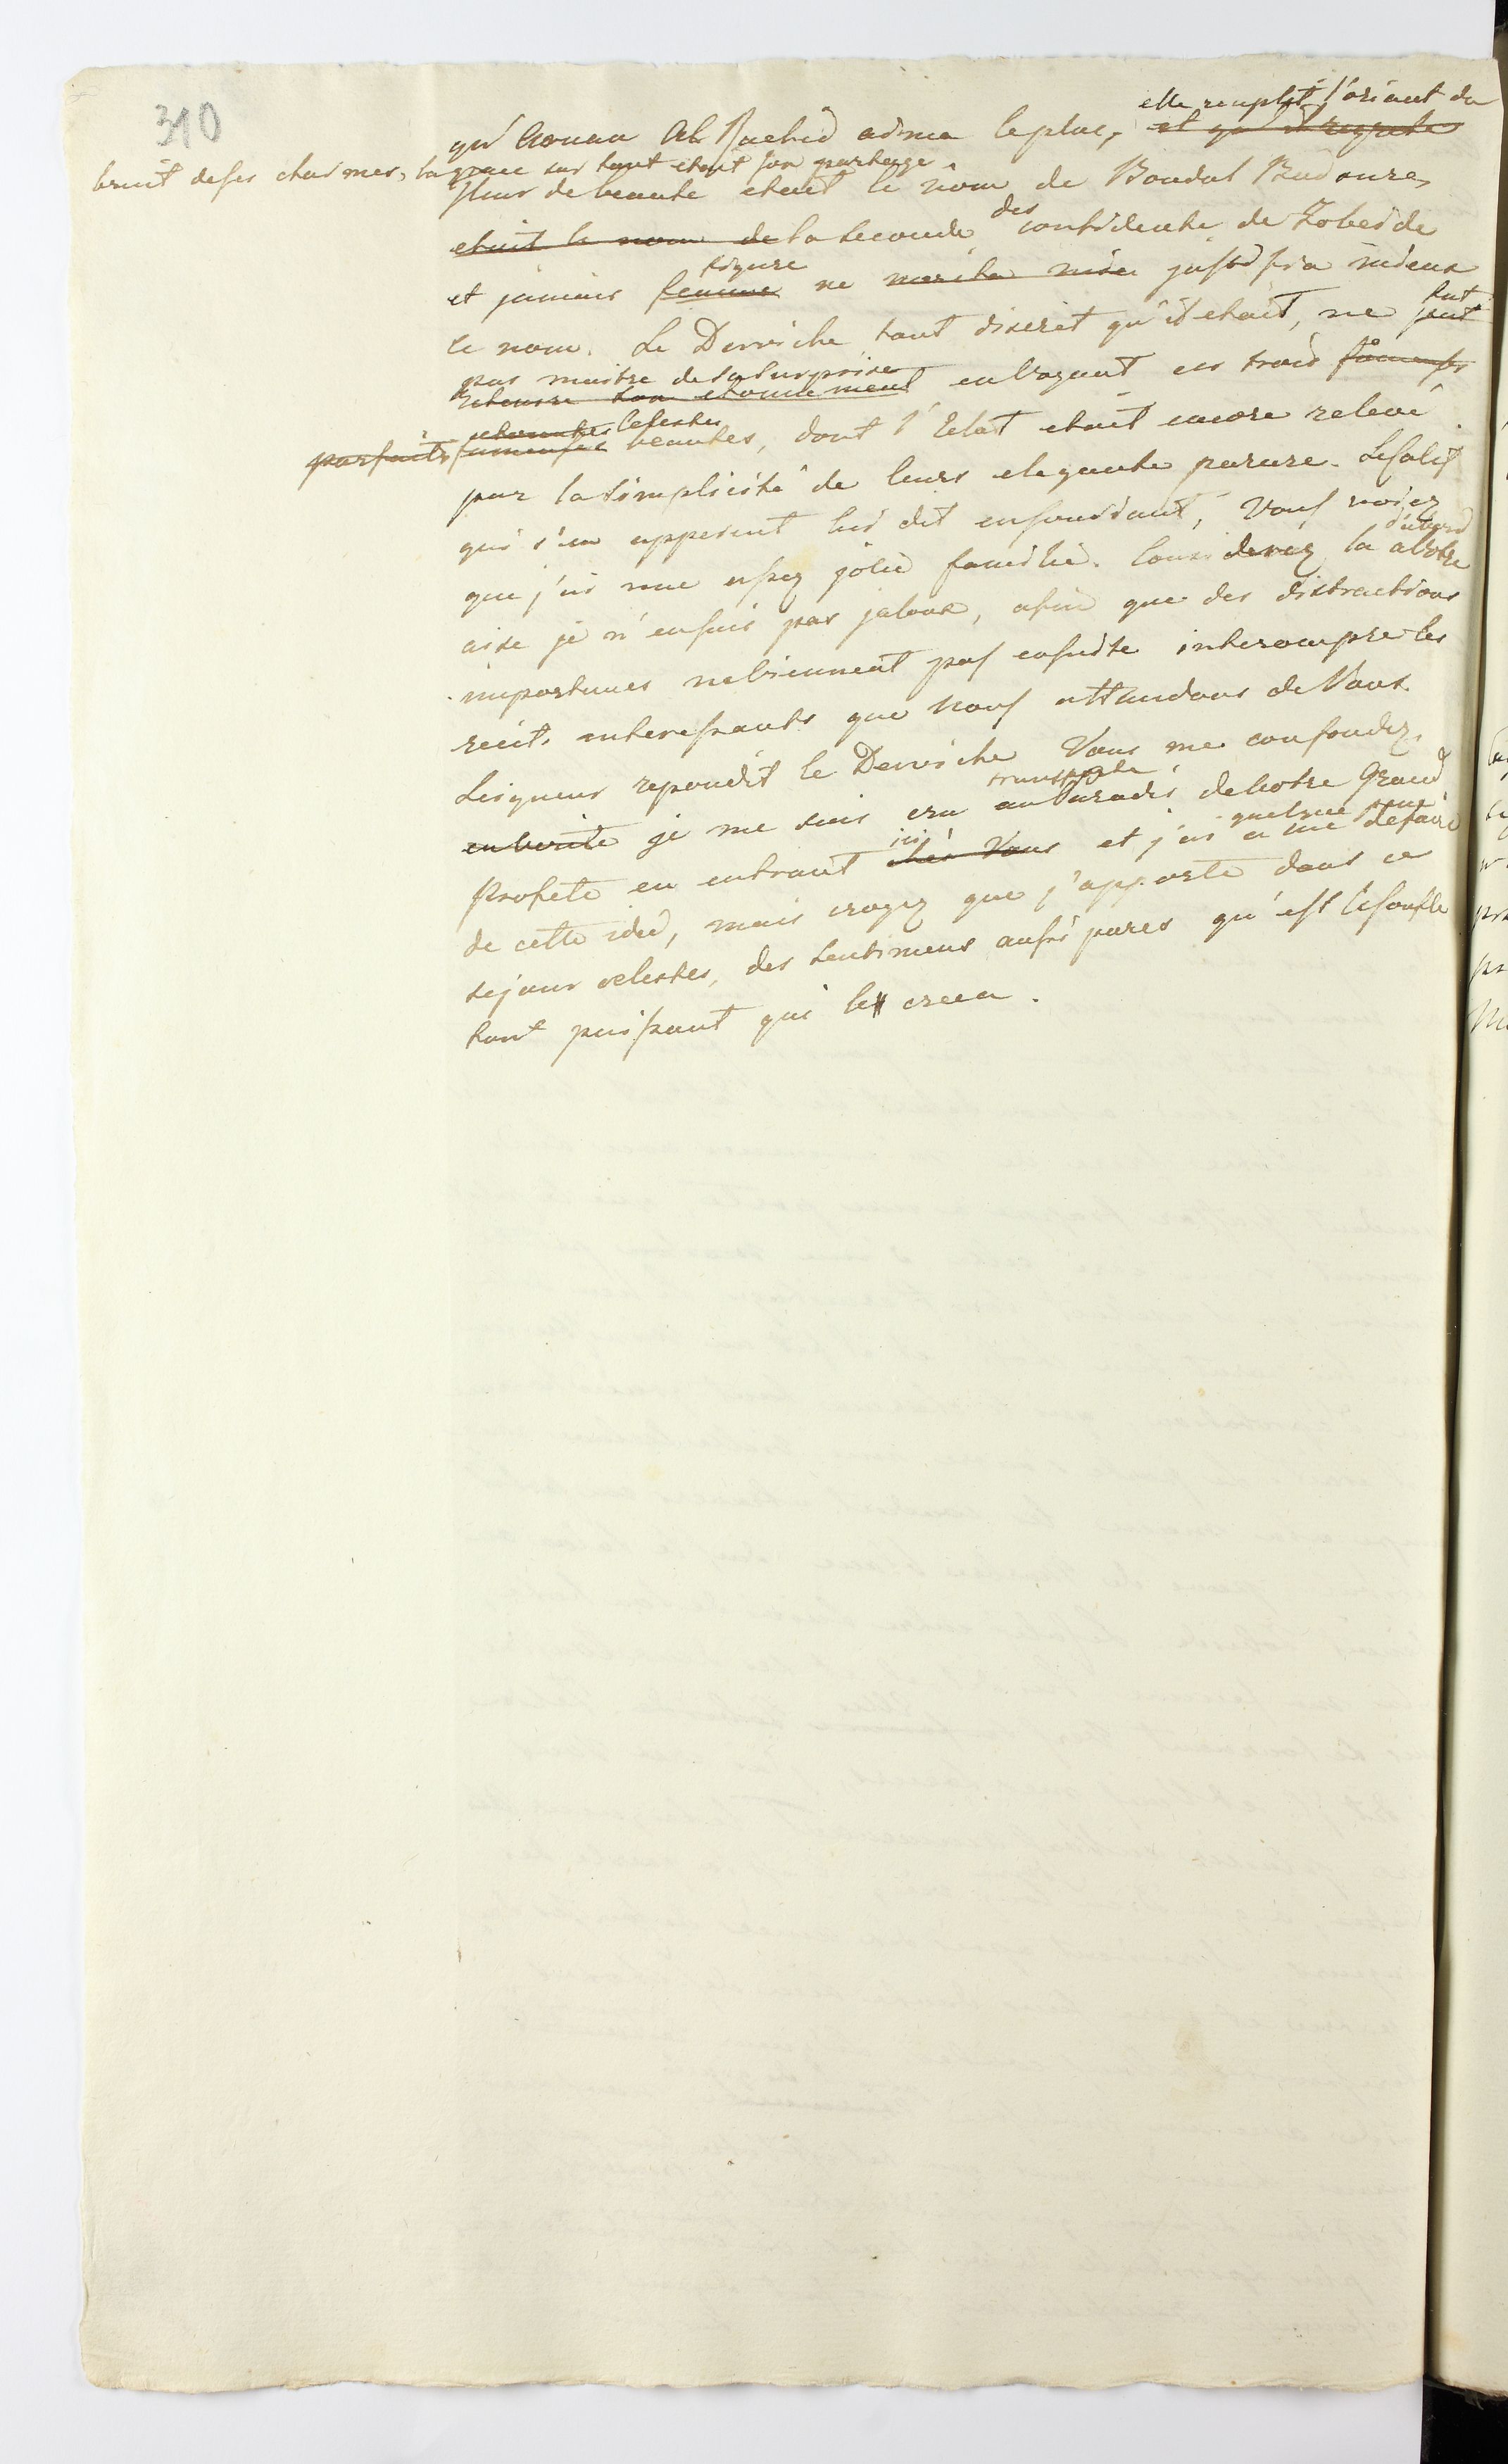 310
elle remplit l'orient du
qu'Aroun Al Rachid aima le plus, et qu'il regreta
bruit de ses charmes, la grace sur tout etait son partage.
fleur de beauté etait le nom de Boudat Budoure,
etait le nom de la seconde des confidente de Zobeide
figure
et jamais femme ne merita mieu justifia mieux
fut
ce nom. Le Derviche tout discret qu'il etait, ne put
pas maitre de sa surprise
retenir son etonnement en voyant ces trois fameuses
celestes
parfaits fameuses beautes, dont l'eclat etait encore relevé
par la simplicité de leurs elegante parure. Le Calif
qui s'en apperçut lui dit en souriant, Vous voiez
d'abord
que j'ai une assez jolie famille. Considerez la a votre
aise je n'en suis pas jaloux, afin que des distractions
importunes ne viennent pas ensuite interompre les
recits interessants que nous attendons de Vous.
Seigneur repondit le Derviche Vous me confondez,
transporté
en verité je me suis cru au Paradis de votre Grand
ici quelque peine
Profete en entrant chés Vous et j'ai a me defaire
de cette idée, mais croyez que j'apporte dans ce
sejour celestes, des sentimens aussi pures qu'est le soufle
tout puissant qui les crea.